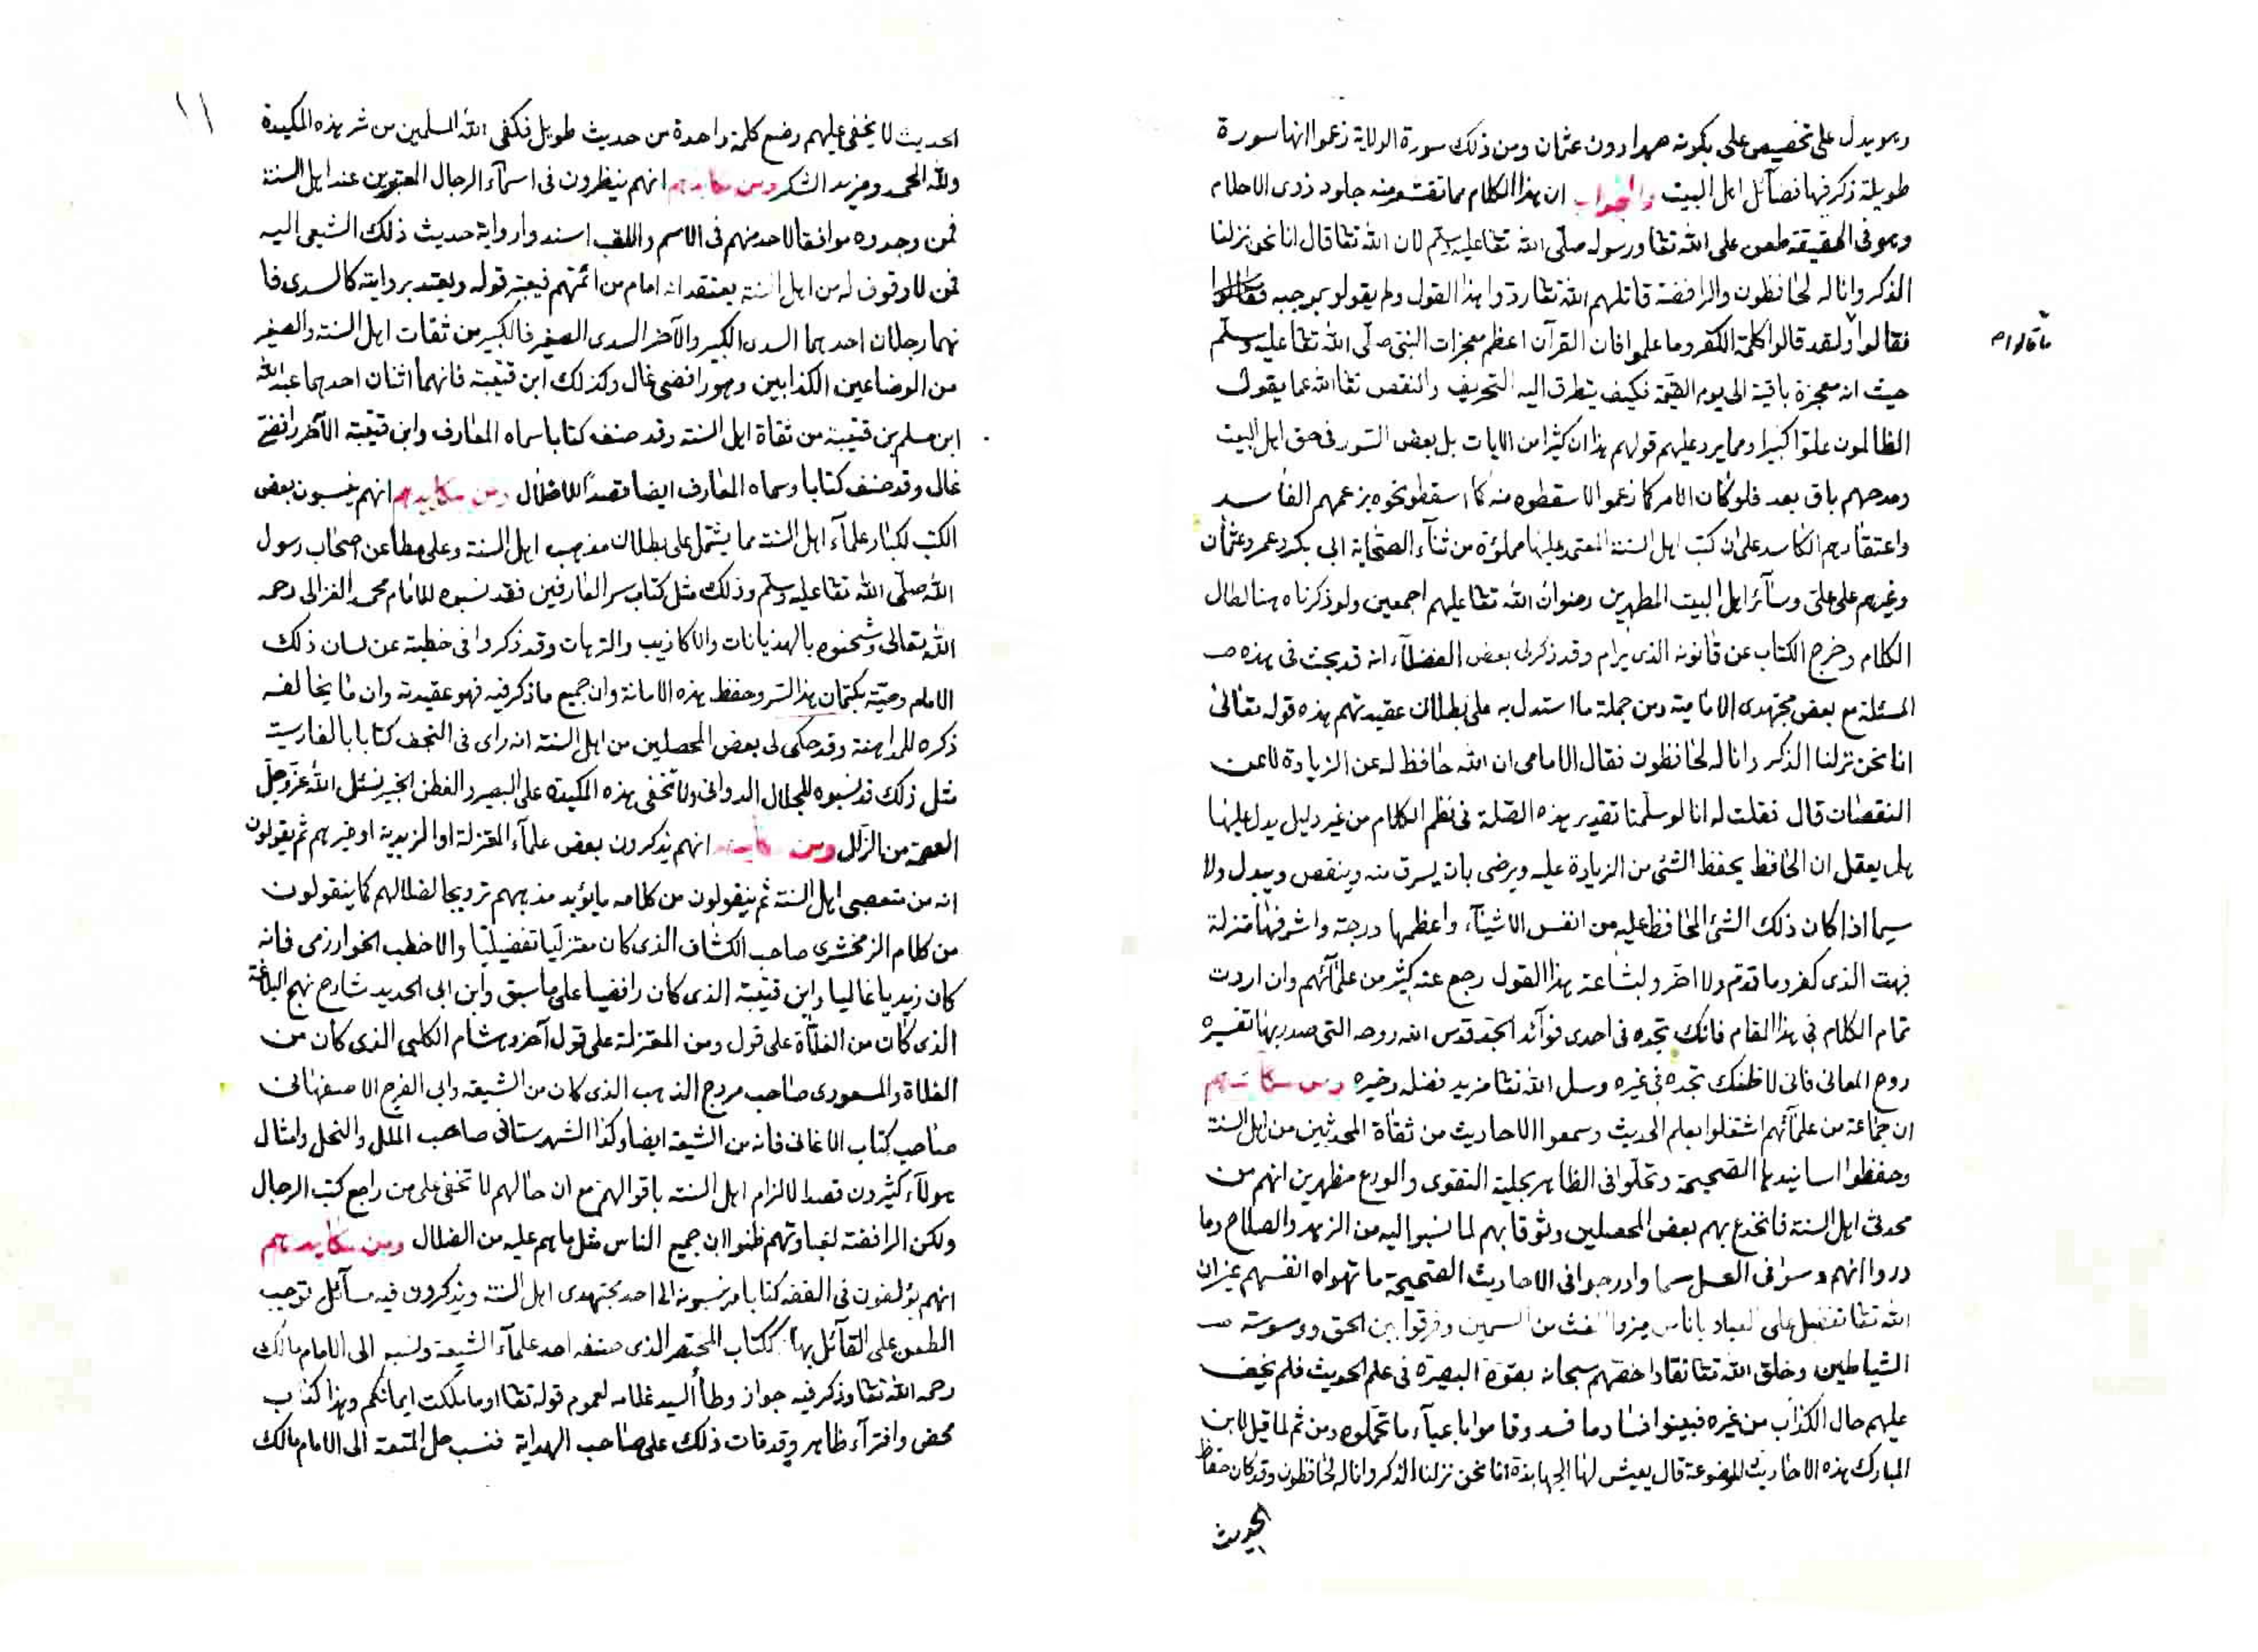 وهو يدل على تخصيص على بكونه صهرا دون عثمان ومن ذلك سورة الولاية زعموا انها سورة
طويلة ذكر فيها فضآئل اهل البيت والجواب ان هذا الكلام مما تقشعر منه جلود ذوى الاحلام
وهو فى الحقيقة طعن على الله تعا ورسوله صلّى الله تعا عليه وسلّم لان الله تعا قال انا نحن نزلنا
الذكر وانا له لحافظون والرافضة قاتلهم الله تعا ردوا هذا القول ولم يقولو بموجبه
فقالوا ما قالوا ولقد قالوا كلمة الكفر وما علموا فان القرآن اعظم معجزات النبى صلّى الله تعا عليه وسلّم
حيث انه معجزة باقية الى يوم القيمة فكيف يتطرق اليه التحريف والنقص تعا الله عما يقول
الظالمون علوّا كبيرا ومما يرد عليهم قولهم هذا ان كثيرا من الايات بل بعض السّور فى حق اهل البيت
ومدحهم باق بعد فلو كان الامر كما زعموا لاسقطوه منه كما اسقطو نحوه بزعمهم الفاسد
واعتقادهم الكاسد على ان كتب اهل السنة المعتمد عليها مملؤة من ثنآء الصحابة ابى بكر وعمر وعثمان
وغيرهم على علىّ وسآئر اهل البيت المطهرين رضوان الله تعا عليهم اجمعين ولو ذكرناه هنا لطال
الكلام وخرج الكتاب عن قانونه الذى يرام وقد ذكر لى بعض الفضلآء انه قد بحث فى هذه
المسئلة مع بعض مجتهدى الامامية ومن جملة ما استدل به على بطلان عقيدتهم هذه قوله تعالى
انا نحن نزلنا الذكر وانا له لحافظون فقال الامامى ان الله حافظ له عن الزيادة لا عن
النقصان قال فقلت له انا لو سلّمنا تقدير هذه الصّلة فى نظم الكلام من غير دليل يدل عليها
هل يعقل ان الحافظ يحفظ الشئ من الزيادة عليه ويرضى بان يسرق منه وينقص ويبدل ولا
سيما اذا كان ذلك الشئ الحافظ عليه من انفس الاشيآء واعظمها درجة واشرفها منزلة
فبهت الذى كفر وما قدم ولا اخر ولبشاعة هذا القول رجع عنه كثير من علمآئهم وان اردت
تمام الكلام فى هذا المقام فانك تجده فى احدى فوآئد الجدّ قدس الله روحه التى صدر بها تفسيره
روح المعانى فانى لا اظنك تجده فى غيره وسل الله تعا مزيد فضله وخيره ومن مكائدهم
ان جماعة من علمآئهم اشتغلوا بعلم الحديث وسمعوا الاحاديث من ثقاة المحدثين من اهل السنة
وحفظوا اسانيدها الصحيحة وتحلّوا فى الظاهر بحلية التقوى والورع مظهرين انهم من
محدثى اهل السنة فانخدع بهم بعض المحصلين وثوقا بهم لما نسبوا اليه من الزهد والصلاح وما
دروا انهم دسوا فى العسل سما وادرجوا فى الاحاديث الصحيحة ما تهواه انفسهم غير ان
الله تعا تفضل على العباد باناس ميزوا الغث من السمين وفرقوا بين الحق ووسوسة
الشياطين وخلق الله تعا نقادا خصّهم سبحانه بقوة البصيرة فى علم الحديث فلم يخف
عليهم حال الكذاب من غيره فبينوا فساد ما فسد وقاموا باعبآء ما تحملوه ومن ثم لما قيل لابن
المبارك هذه الاحاديث الموضوعة قال يعيش لها الجهابذة انا نحن نزلنا الذكر وانا له لحافظون وقد كان حفاظ
الحديث
١١
الحديث لا يخفى عليهم وضع كلمة واحدة من حديث طويل فكفى الله المسلمين من شر هذه المكيدة
ولله الحمد ومزيد الشكر ومن مكايدهم انهم ينظرون فى اسمآء الرجال المعتبرين عند اهل السنة
فمن وجدوه موافقا لاحد منهم فى الاسم واللقب اسندوا رواية حديث ذلك الشيعى اليه
فمن لا وقوف له من اهل السنة يعتقد انه امام من ائمتهم فيعتبر قوله ويعتد بروايته كالسدى فا
نهما رجلان احدهما السدى الكبير والآخر السدى الصغير فالكبير من ثقات اهل السنة والصغير
من الوضاعين الكذابين وهو رافضى غال وكذلك ابن قتيبة فانهما اثنان احدهما عبد الله
ابن مسلم بن قتيبة من ثقاة اهل السنة وقد صنف كتابا سماه المعارف وابن قتيبة الآخر رافضى
غال وقد صنف كتابا وسماه المعارف ايضا قصدًا للاضلال ومن مكايدهم انهم ينسبون بعض
الكتب لكبار علمآء اهل السنة مما يشتمل على بطلان مذهب اهل السنة وعلى مطاعن اصحاب رسول
الله صلّى الله تعا عليه وسلّم وذلك مثل كتاب سر العارفين فقد نسبوه للامام محمد الغزالى رحمه
الله تعالى وشحنوه بالهذيانات والاكاذيب والترهات وقد ذكروا فى خطبته عن لسان ذلك
الامام وصيّة بكتمان هذا السّر وحفظ هذه الامانة وان جميع ما ذكر فيه فهو عقيدته وان ما يخالفه
ذكره للمداهنة وقد حكى لى بعض المحصلين من اهل السنة انه راى فى النجف كتابا بالفارسية
مثل ذلك قد نسبوه للجلال الدوانى ولا تخفى هذه المكيدة على البصير والفطن الخبير نسئل الله عزّ وجلّ
العصمة من الزلل ومن مكايدهم انهم يذكرون بعض علمآء المعتزلة او الزيدية او غيرهم ثم يقولون
انه من متعصبى اهل السنة ثم ينقولون من كلامه ما يؤيد مذهبهم ترويجا لضلالهم كما ينقولون
من كلام الزمخشرى صاحب الكشاف الذى كان معتزليّا تفضيليّا والاخطب الخوارزمى فانه
كان زيديا غاليا وابن قتيبة الذى كان رافضيا على ما سبق وابن ابى الحديد شارح نهج البلاغة
الذى كان من الغلاة على قول ومن المعتزلة على قول آخر وهشام الكلبى الذى كان من
الغلاة والمسعودى صاحب مروج الذهب الذى كان من الشيعة وابى الفرج الاصفهانى
صاحب كتاب الاغانى فانه من الشيعة ايضا وكذا الشهرستانى صاحب الملل والنحل وامثال
هولآء كثيرون قصدا لالزام اهل السنة باقوالهم مع ان حالهم لا تخفى على من راجع كتب الرجال
ولكن الرافضة لغباوتهم ظنوا ان جميع الناس مثل ما هم عليه من الضلال ومن مكايدهم
انهم يؤلفون فى الفقه كتابا وينسبونه الى احد مجتهدى اهل السنة ويذكرون فيه مسآئل توجب
الطعن على القآئل بها ككتاب المختصر الذى صنفه احد علمآء الشيعة ونسبه الى الامام مالك
رحمه الله تعا وذكر فيه جواز وطأ السيد غلامه لعموم قوله تعا او ما ملكت ايمانكم وهذا كذب
محض وافترآء ظاهر وقد فات ذلك على صاحب الهداية فنسب حل المتعة الى الامام مالك